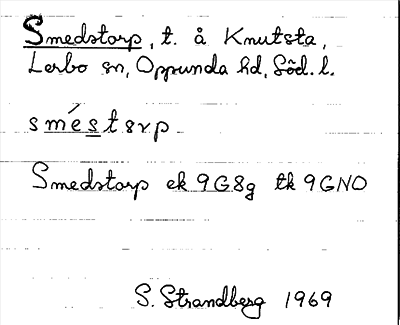 Smedstorp, t. å Knutsta,
Lerbo sn, Oppunda hd, Söd. l.
sméstɛrp
Smedstorp ek 9G8g tk 9GNO
S. Strandberg 1969